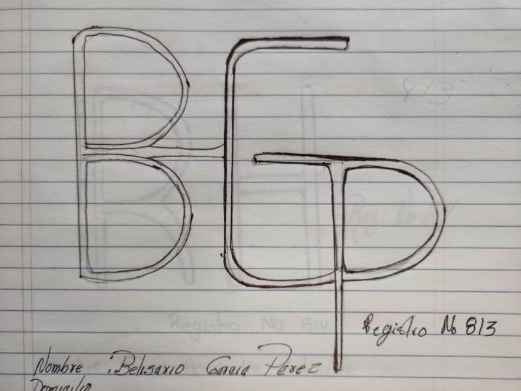 BGP
Registro No 813
Nombre : Belisario Garcia Perez
Domicilio